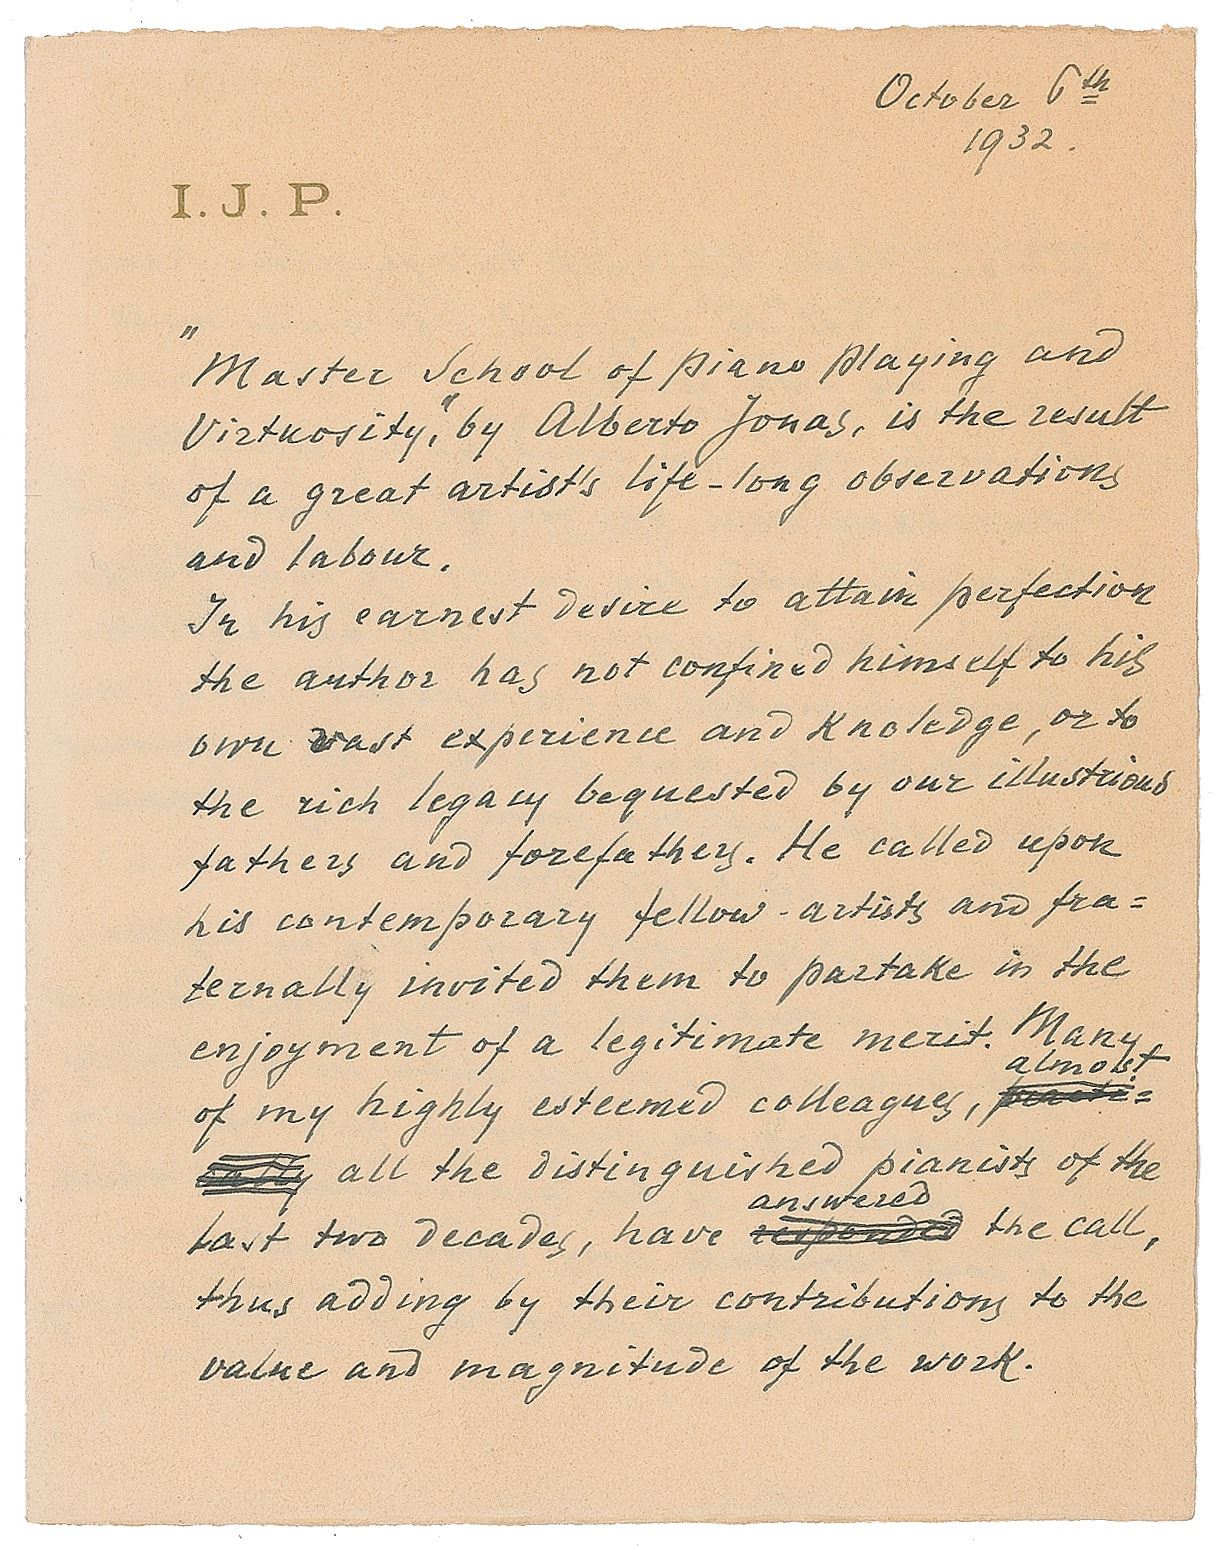 October 6th
1932.
I. J. P.
"Master School of Piano Playing and
Virtuosity," by Alberto Jonas, is the result
of a great artist's life-long observations
and labour.
In his earnest desire to attain perfection
the author has not confined himself to his
own vast experience and Knoledge, or to
the rich legacy bequested by our illustrious
fathers and forefathers. He called upon
his contemporary fellow-artists and fra=
ternally invited them to partake in the
enjoyment of a legitimate merit. Many
almost
of my highly esteemed colleagues, practi=
cally all the distinguished pianists of the
answered
last two decades, have responded the call,
thus adding by their contributions to the
value and magnitude of the work.